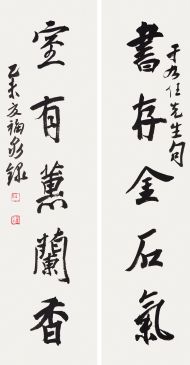 書存金石氣
于右任先生句
室有蕙蘭香
乙未友福永錄